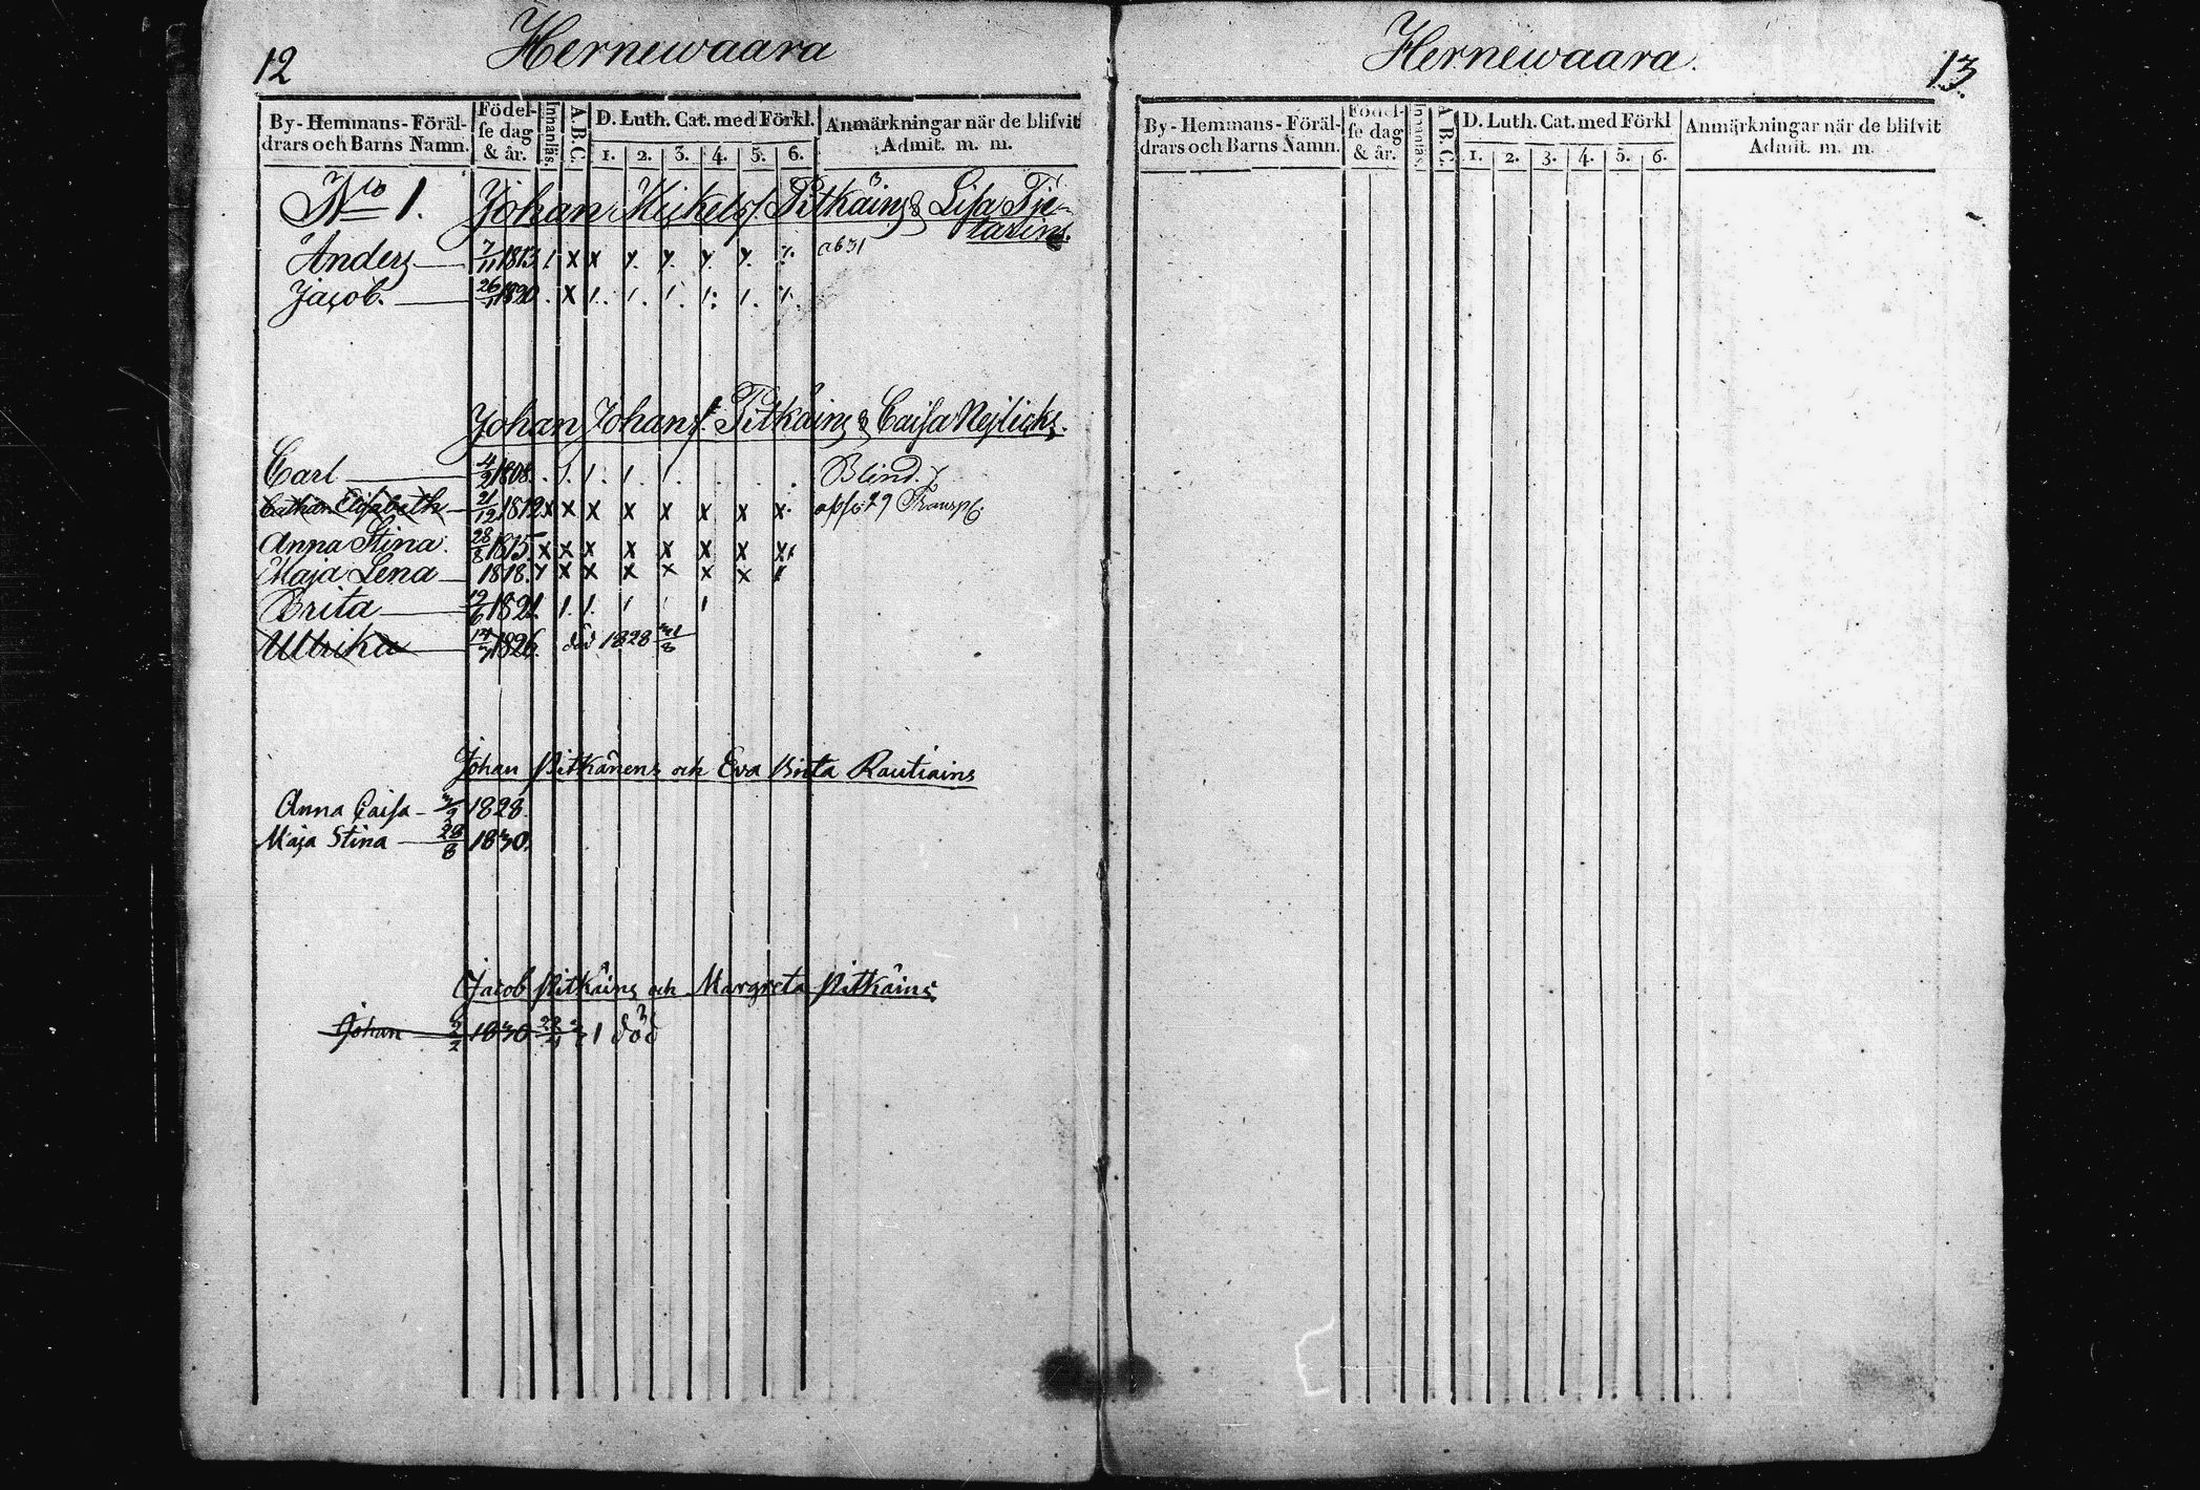 12
Hernewaara
By- Hemmans- Föräl-
drars och Barns Namn.
Födel-
se dag
& år.
Innanläs.
A. B. C.
D. Luth. Cat. med Förkl.
1. 2. 3. 4. 5. 6.
Anmärkningar när de blifvit
Admit. m. m.
No 1. Johan Mickelss. Pitkäins & Lisa Tie-
tarins.
Anders 7/11 1813 / x x y. y. y. y. %.
Jacob. 26/1 1820 . x /. /. /. /. /. %.
Johan Johanss. Pitkäins & Caisa
Carl 4/2 1808. . /. /. /. /. . . . Blind.
Cathar. Elisabeth 21/12 1812 x x x x x x x x.
Anna Stina. 28/8 1815 x x x x x x x x
Maja Lena 1818. y x x x x x x
Brita 19/6 1821. /. /. / / /
Ulrika 1826. död 1828
Johan Pitkänens och Eva Brita Rautiains
Anna Caisa 1828.
Maja Stina 28/8 1830.
Jacob Pitkäins och Margreta Pitkäins
Johan 2/2 1830 31 död
Hernewaara.
13.
By- Hemmans- Föräl-
drars och Barns Namn.
Födel-
se dag
& år.
Innanläs.
A. B. C.
D. Luth. Cat. med Förkl
1. 2. 3. 4. 5. 6.
Anmärkningar när de blifvit
Admit. m. m.